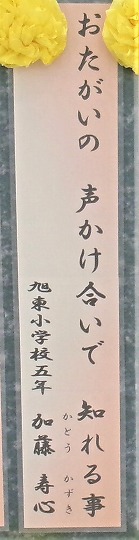 おたがいの 声かけ合いで 知れる事
旭東小学校五年 加藤 寿心
かとう かずき